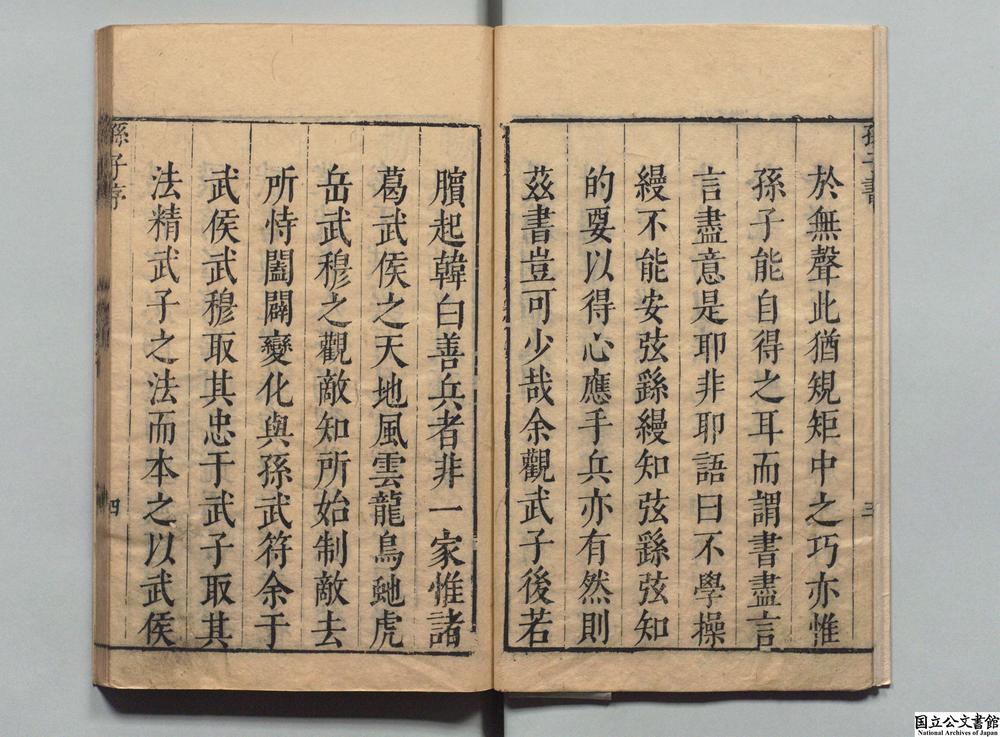 於無聲此猶規矩中之巧亦惟
孫子能自得之耳而謂書盡言
言盡意是耶非耶語曰不學操
縵不能安弦繇縵知弦繇弦知
的要以得心應手兵亦有然則
茲書豈可少哉余觀武子後若
三
臏起韓白善兵者非一家惟諸
葛武侯之天地風雲龍鳥虵虎
岳武穆之觀敵知所始制敵去
所恃闔闢變化與孫武符余于
武侯武穆取其忠于武子取其
法精武子之法而本之以武侯
孫子序
四
国立公文書館
National Archives of Japan